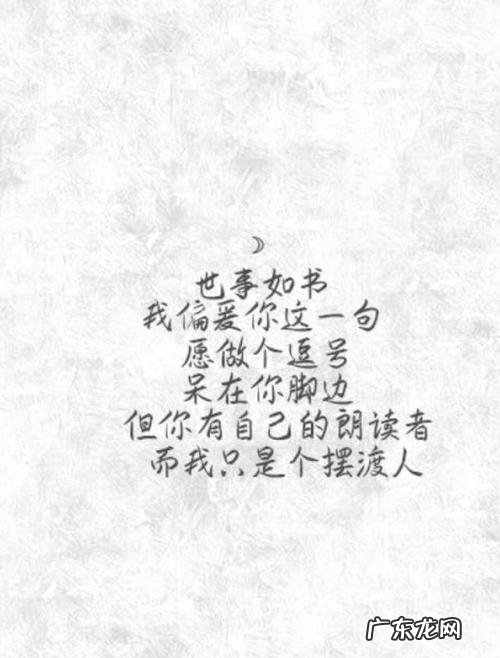 世事如书
我偏爱你这一句
愿做个逗号
呆在你脚边
但你有自己的朗读者
而我只是个摆渡人
广东龙网